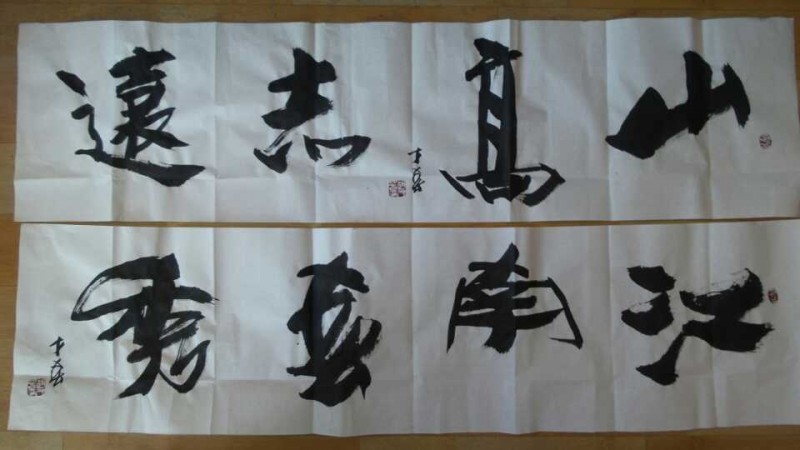 山高志遠
江南藝秀